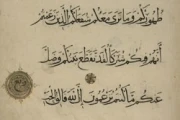 ظهوركم وما نرى معكم شفعاءكم الذين زعمتم
أنهم فيكم شركاء لقد تقطع بينكم وضل
عنكم ما كنتم تزعمون إن الله فالق الحب